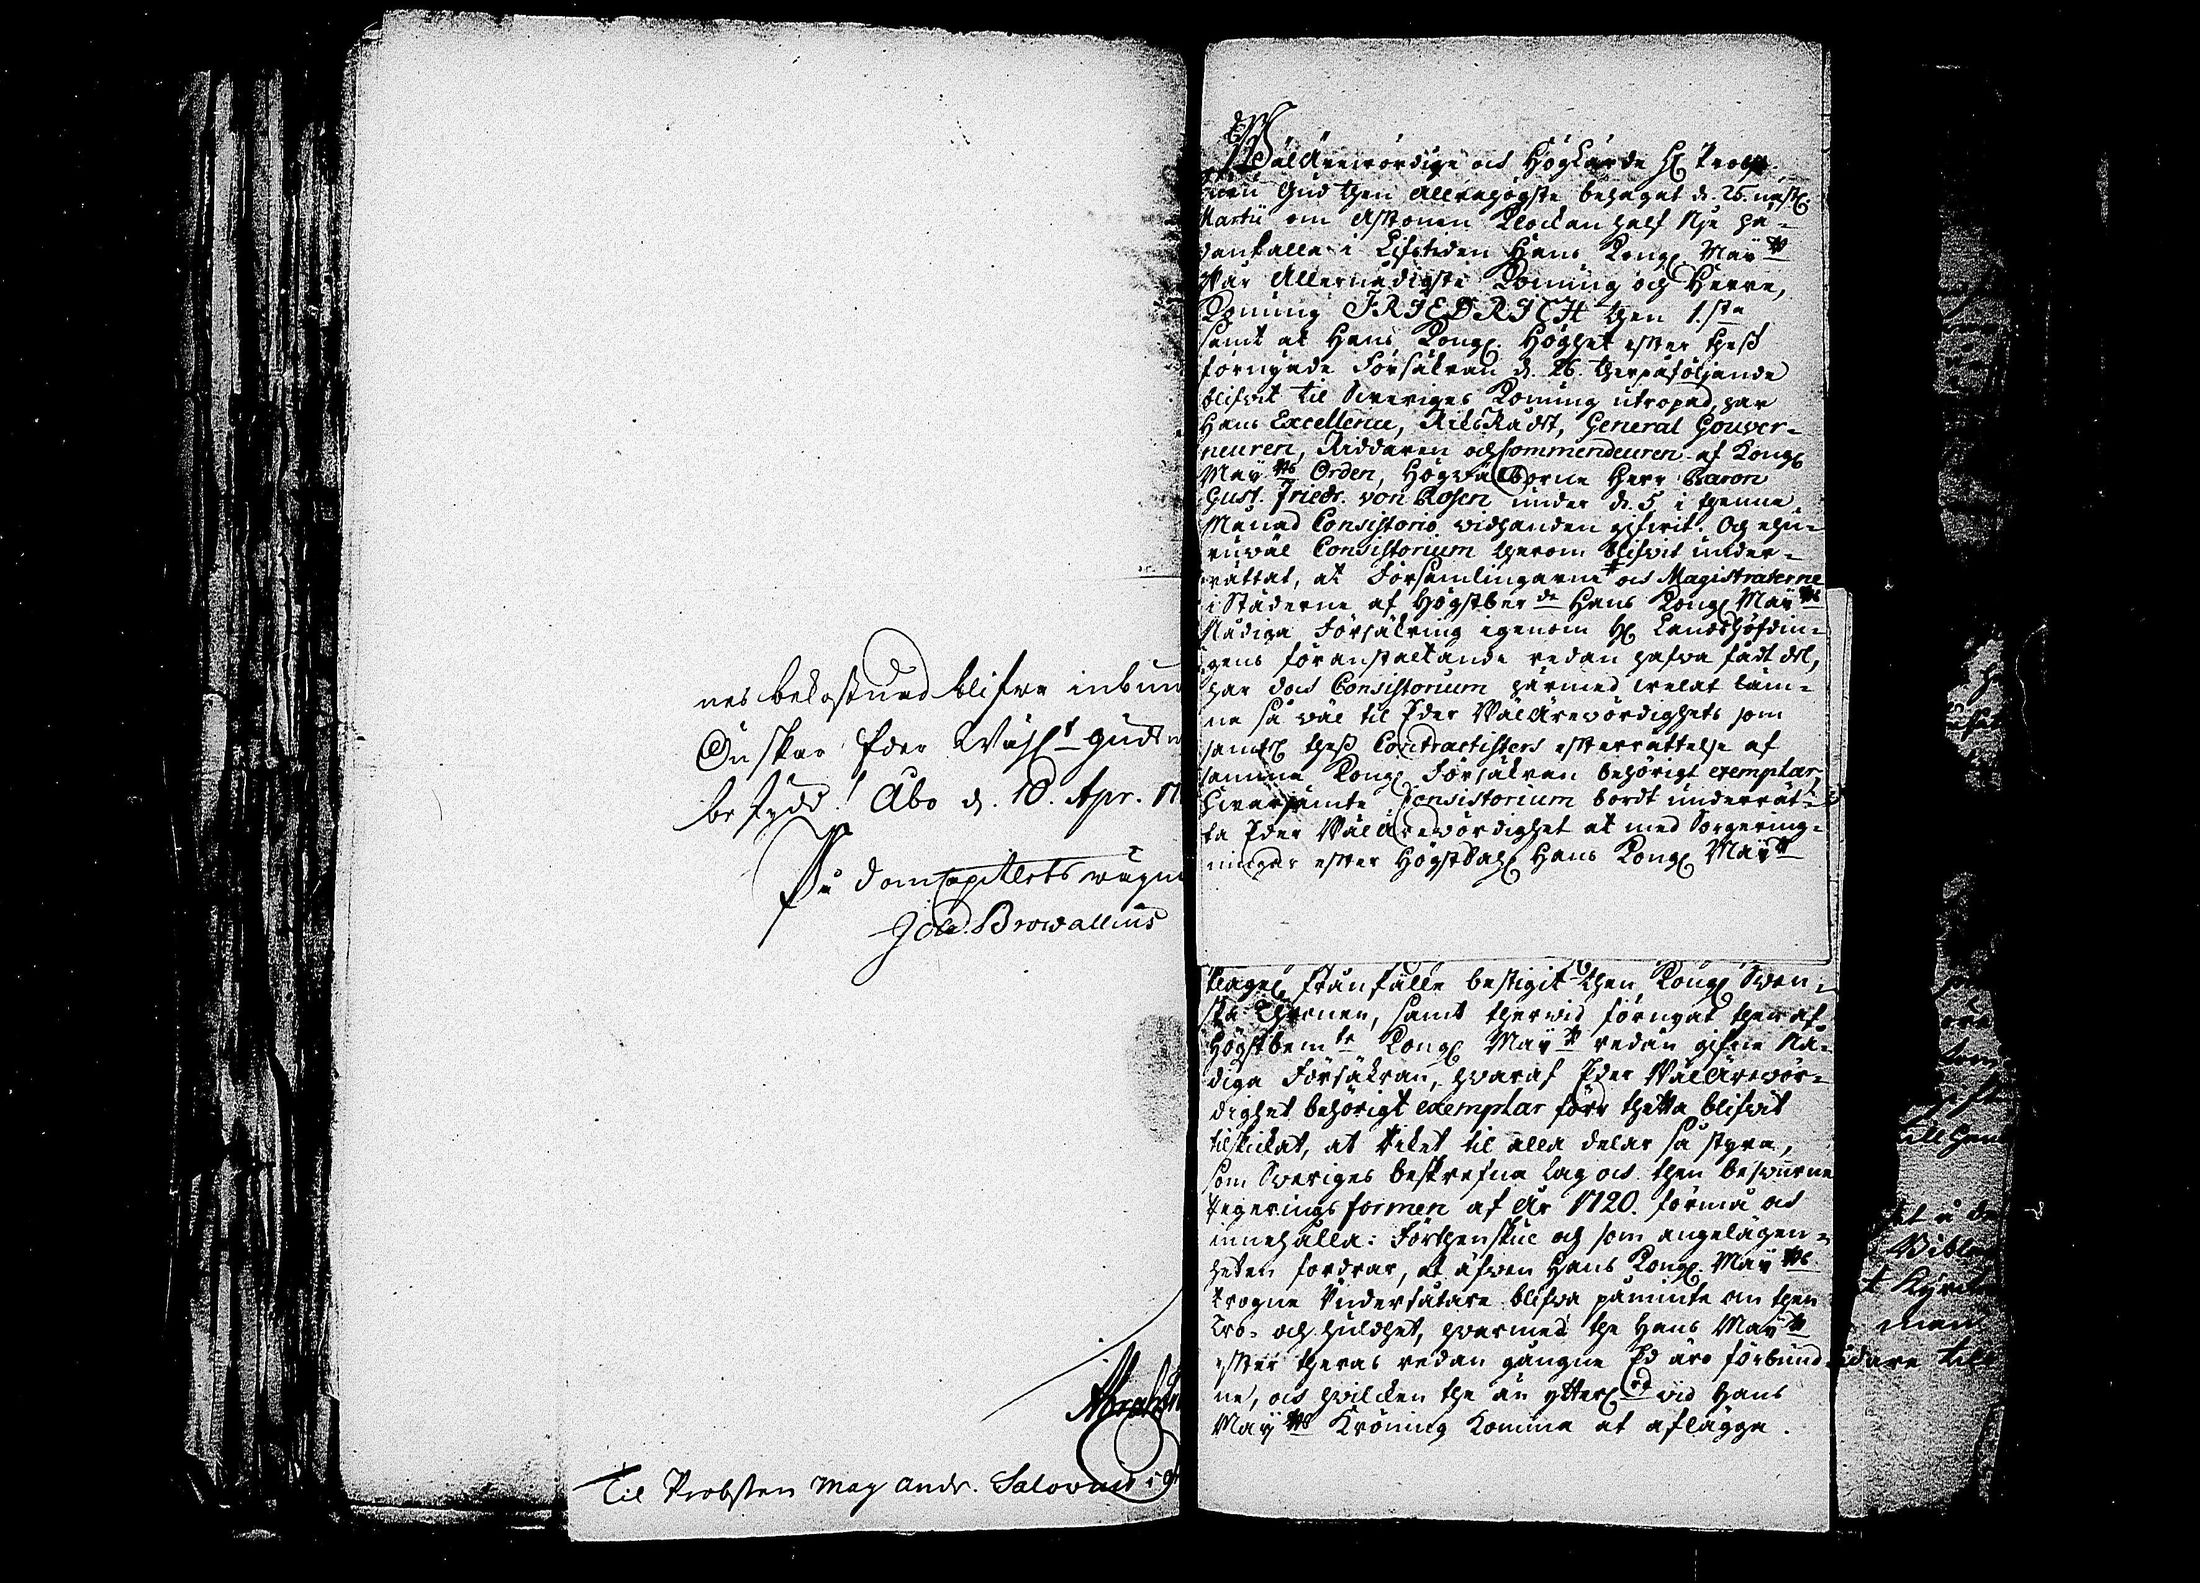 nes bekostnad blifwa inbun
Önskar Eder Wäl:t Guds
beskydd! Åbo d. 10. Apr. 17
På DomCapitlets wägna
Joh. Browallius
Abraham
Til Probsten Mag Andr. Salovius i
WälÄrewördige och Höglärde H: Probst
Gud then Allrahögste behagat d. 25. nästl:
Martii om Aftonen Klockan half Nije hä-
dankalla i Lifstiden Hans Kongl. Maij:tt
Wår Allernådigste Konung och Herre,
Konung FRIEDRICH then 1.sta
samt at Hans Kongl. Höghet efter thess
förnyade Försäkran d. 26. therpåföljande
blifwit til Sweriges Konung utropad, har
Hans Excellence, RiksRådet, General Gouver-
neuren, Riddaren och Commendeuren af Kongl.
Maij:tts Orden, Högwälborne Herr Baron
Gust. Friedr. von Rosen under d. 5 i thenne
Månad Consistorio widhanden gifwit. Och ehu-
ruwäl Consistorium therom blifwit under-
rättat, at Församlingarne och Magistraterne
i Städerne af Högstber:de Hans Kongl. Maij:tts
Nådiga Försäkring igenom H: Landshöfdin-
gens föranstaltande redan hafwa fådt del,
har doch Consistorium härmed welat läm-
na så wäl til Eder WälÄrewördighets som
samtl. thess Contractisters efterrättelse af
samma Kongl. Försäkran behörigt exemplar,
hwarjämte Consistorium bordt underrät-
ta Eder WälÄrewördighet at med Sorgering-
ningar efter Högstsal: Hans Kongl. Maij:tt
frånfälle bestigit then Kongl. Swen-
ska Thronen, samt therwid förnyat then af
Högstbem:te Kongl. Maij:tt redan gifne Nå-
diga Försäkran, hwaraf Eder WälÄrewör-
dighet behörigt exemplar förr thetta blifwit
tilskickat, at Riket til alla delar så styra,
som Sweriges beskrefna Lag och then beswurne
Regerings formen af År 1720. förmå och
innehålla: Förthenskul och som angelägen-
heten fordrar, at äfwen Hans Kongl. Maij:tts
trogne Undersåtare blifwa påminte om then
tro- och huldhet, hwarmed the Hans Maij:tt
efter theras redan gångne Ed äro förbund-
ne, och hwilcken the än ytterl: wid Hans
Maij:tts Kröning komma at aflägga.